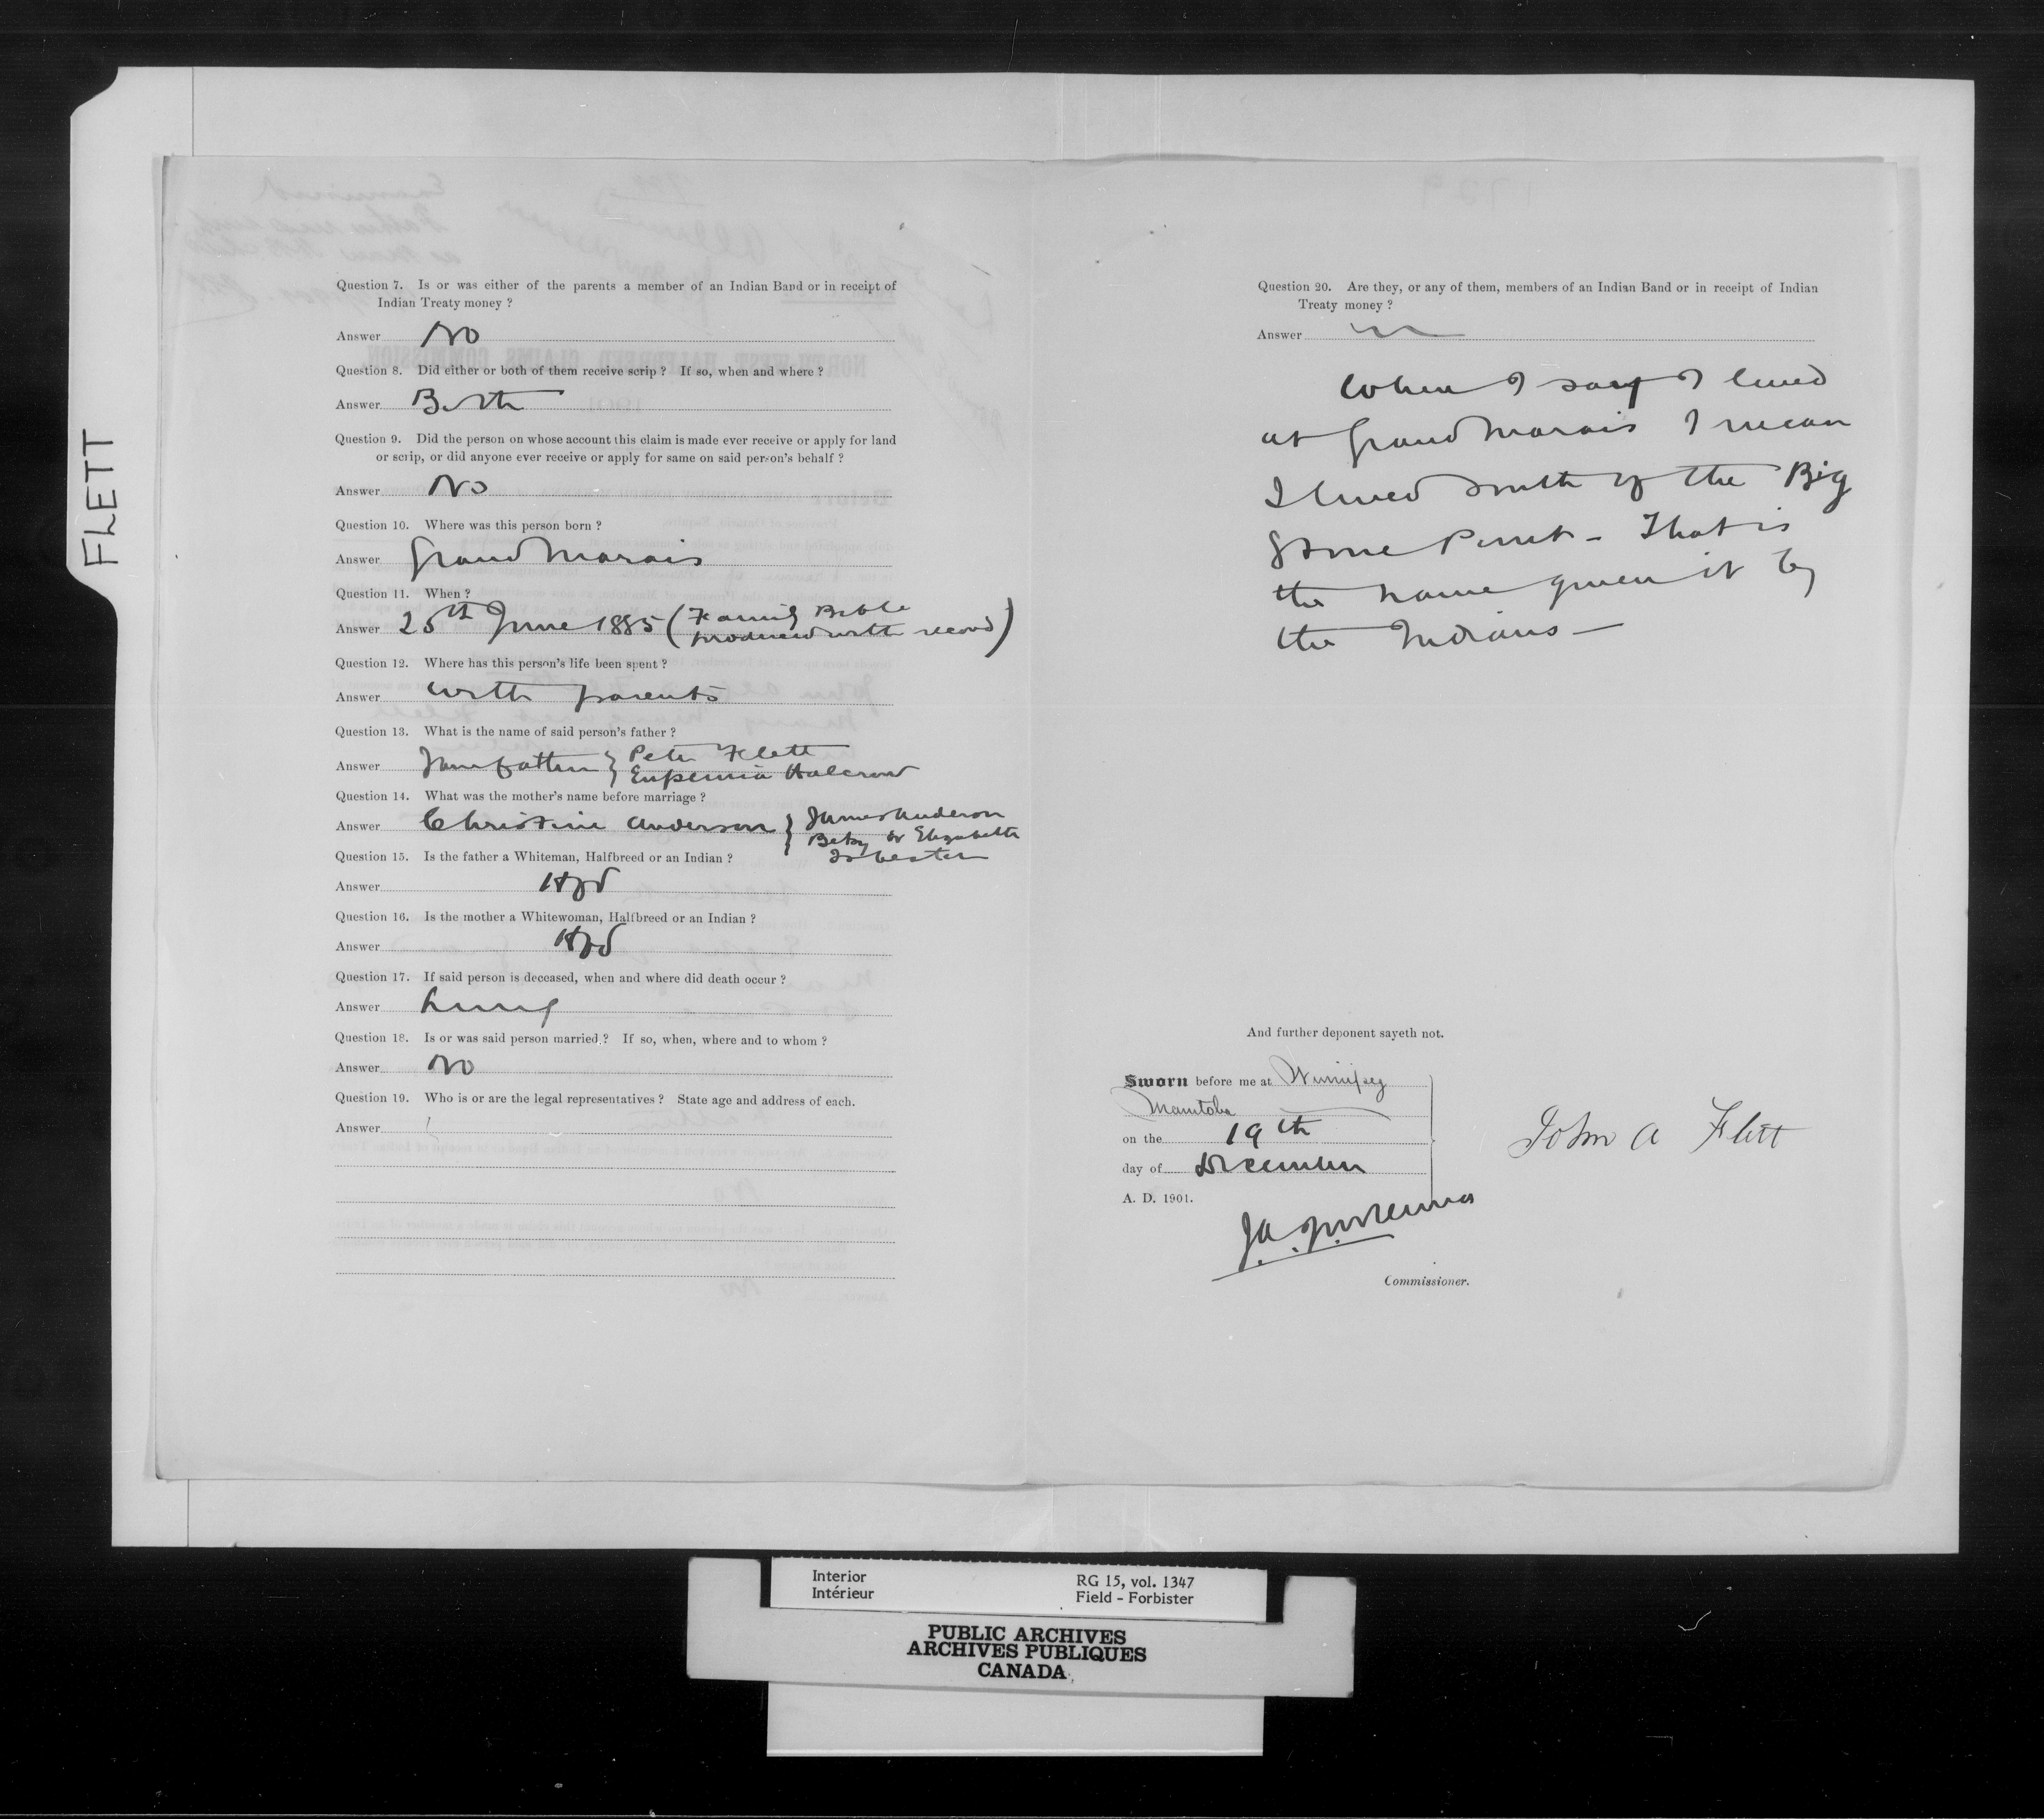 FLETT
Question 7. Is or was either of the parents a member of an Indian Band or in receipt of
Indian Treaty money ?
Answer No
Question 8. Did either or both of them receive scrip ? If so, when and where ?
Answer Both
Question 9. Did the person on whose account this claim is made ever receive or apply for land
or scrip, or did anyone ever receive or apply for same on said person's behalf ?
Answer No
Question 10. Where was this person born ?
Answer Grand Marais
Question 11. When ?
Answer 25th June 1885 (Family Bible
produced with record)
Question 12. Where has this person's life been spent ?
Answer with parents
Question 13. What is the name of said person's father ?
Answer I am father } Peter Flett
Eupemia Halcrow
Question 14. What was the mother's name before marriage ?
Answer Christine Anderson } James Anderson
Betsy or Elizabeth
Isbester
Question 15. Is the father a Whiteman, Halfbreed or an Indian ?
Answer Hbd
Question 16. Is the mother a Whitewoman, Halfbreed or an Indian ?
Answer Hbd
Question 17. If said person is deceased, when and where did death occur ?
Answer Living
Question 18. Is or was said person married ? If so, when, where and to whom ?
Answer No
Question 19. Who is or are the legal representatives ? State age and address of each.
Answer
Question 20. Are they, or any of them, members of an Indian Band or in receipt of Indian
Treaty money ?
Answer
When I say I lived
at Grand Marais I mean
I lived south of the Big
Stone Point - That is
the name given it by
the Indians -
And further deponent sayeth not.
Sworn before me at Winnipeg
Manitoba
on the 19th
day of December
A. D. 1901.
John A Flett
Commissioner.
Interior
Intérieur
RG 15, vol. 1347
Field - Forbister
PUBLIC ARCHIVES
ARCHIVES PUBLIQUES
CANADA